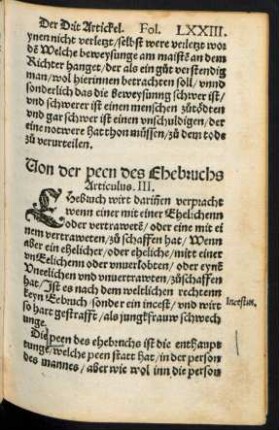 Der Drit Artickel. Fol. LXXIII.
ynen nicht verletzt/selbst were verletzt wor
dē Welche beweysunge am maistē an dem
Richter hanget/der als ein gůt verstendig
man/wol hierinnen betrachten soll/vnnd
sonderlich das die Beweysunng schwer ist/
vnd schwerer ist einen menschen zůtödten
vnd gar schwer ist einen vnschuldigen/der
eine notwere hat thon müssen/zů dem tode
zů verurteilen.
Von der peen des Ehebruchs
Articulus. III.
EHebruch wirt dariñen verpracht
wenn einer mit einer Ehelichenn
oder vertrawetē/oder eine mit ei
nem vertraweten/zů schaffen hat/Wenn
aber ein ehelicher/oder eheliche/mitt einer
vnEelichenn oder vnuerlobten/oder eynē
Vneelichen vnd vnuertrawten/zůschaffen
hat/Ist es nach dem weltlichen rechtenn
keyn Eebruch sonder ein incest/vnd wirt
so hart gestrafft/als jungkfrauw schwech
unge.
Incestus.
Die peen des ehebruchs ist die enthaupt
tunge/welche peen statt hat/in der person
des mannes/aber wie wol inn die person